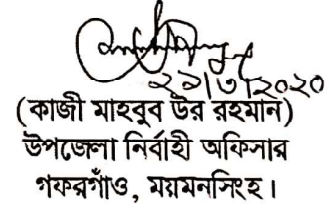 ২৯/৩/২০২০
(কাজী মাহবুব উর রহমান)
উপজেলা নির্বাহী অফিসার
গফরগাঁও, ময়মনসিংহ।